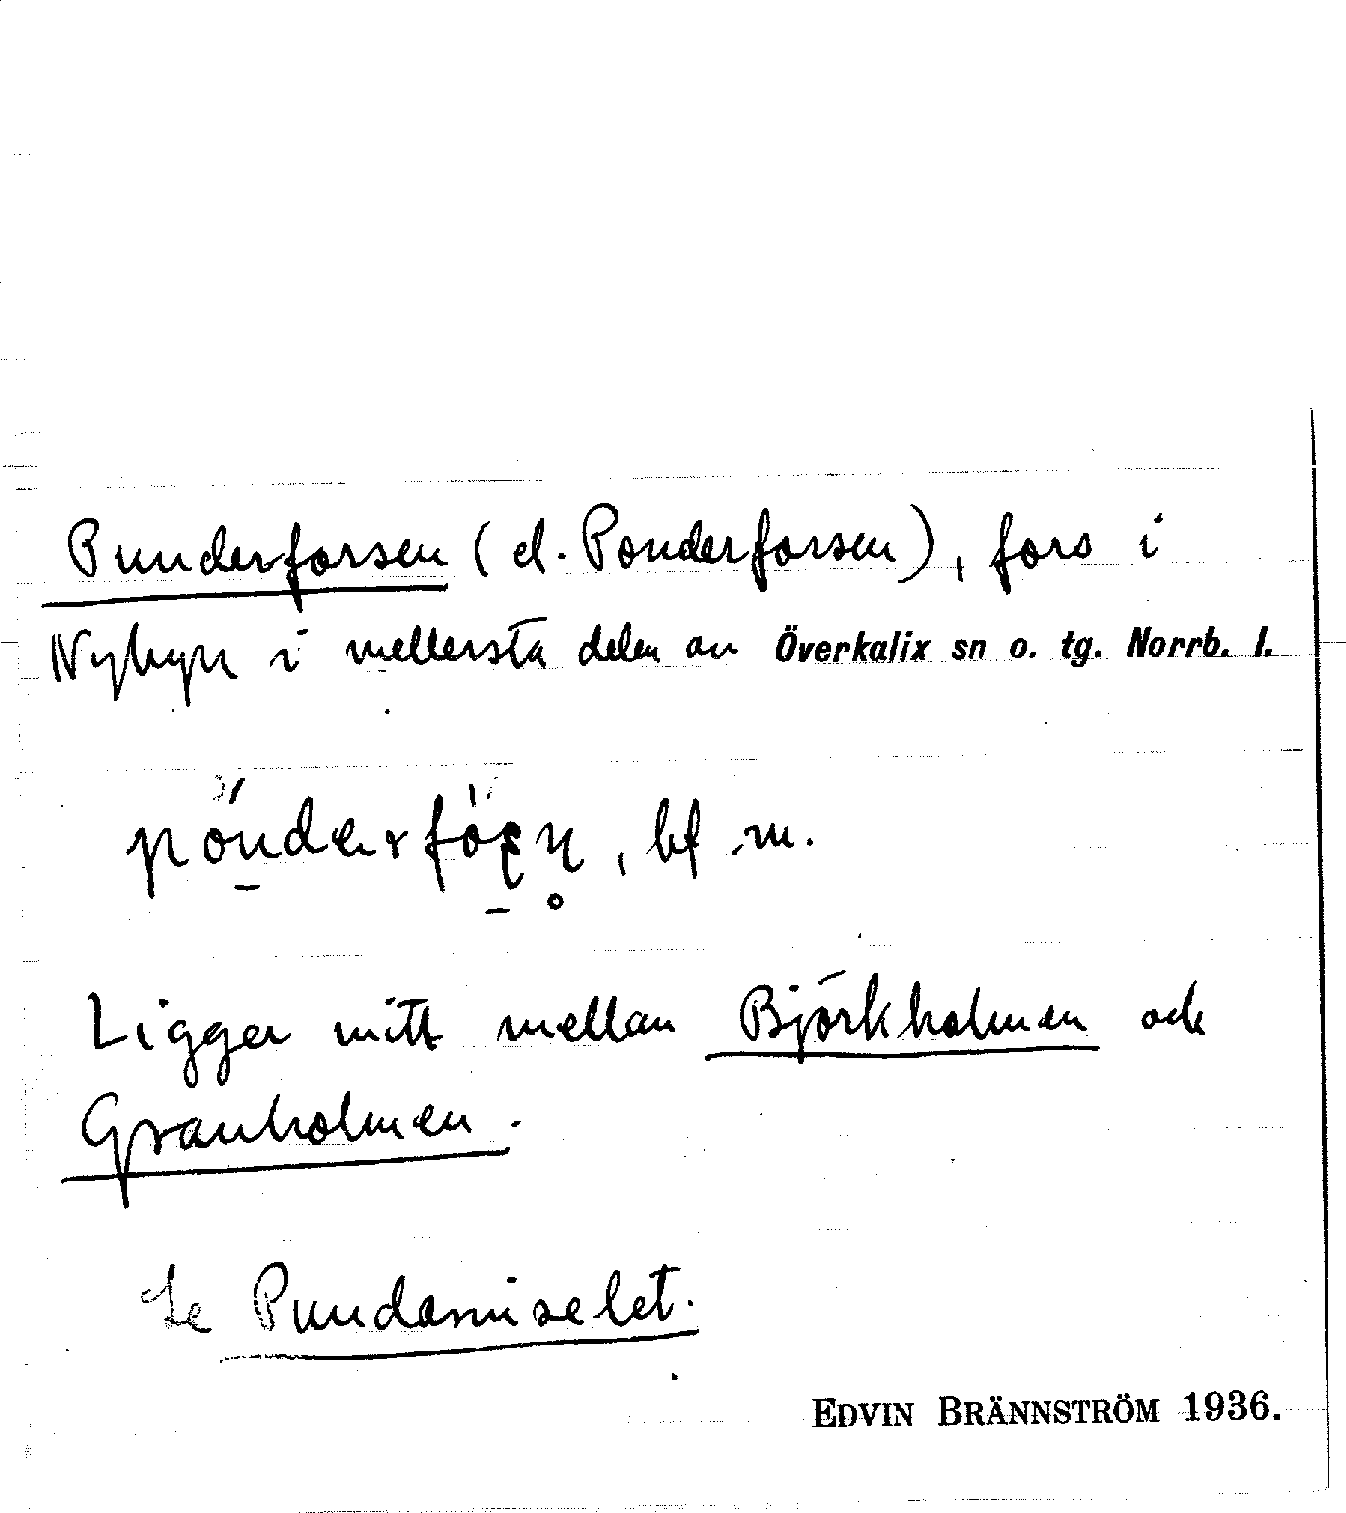 Punderforsen (el. Ponderforsen), fors i
Nybyn i mellersta delen av Överkalix sn o. tg. Norrb. l.
bf m.
Ligger mitt mellan Björkholmen och
Granholmen.
Se Pundarniselet.
EDVIN BRÄNNSTRÖM 1936.